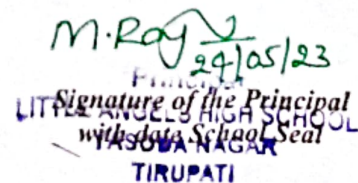 M. Roy
24/05/23
Principal
Signature of the Principal
LITTLE ANGELS HIGH SCHOOL
with date School Seal
YASODA NAGAR
TIRUPATI